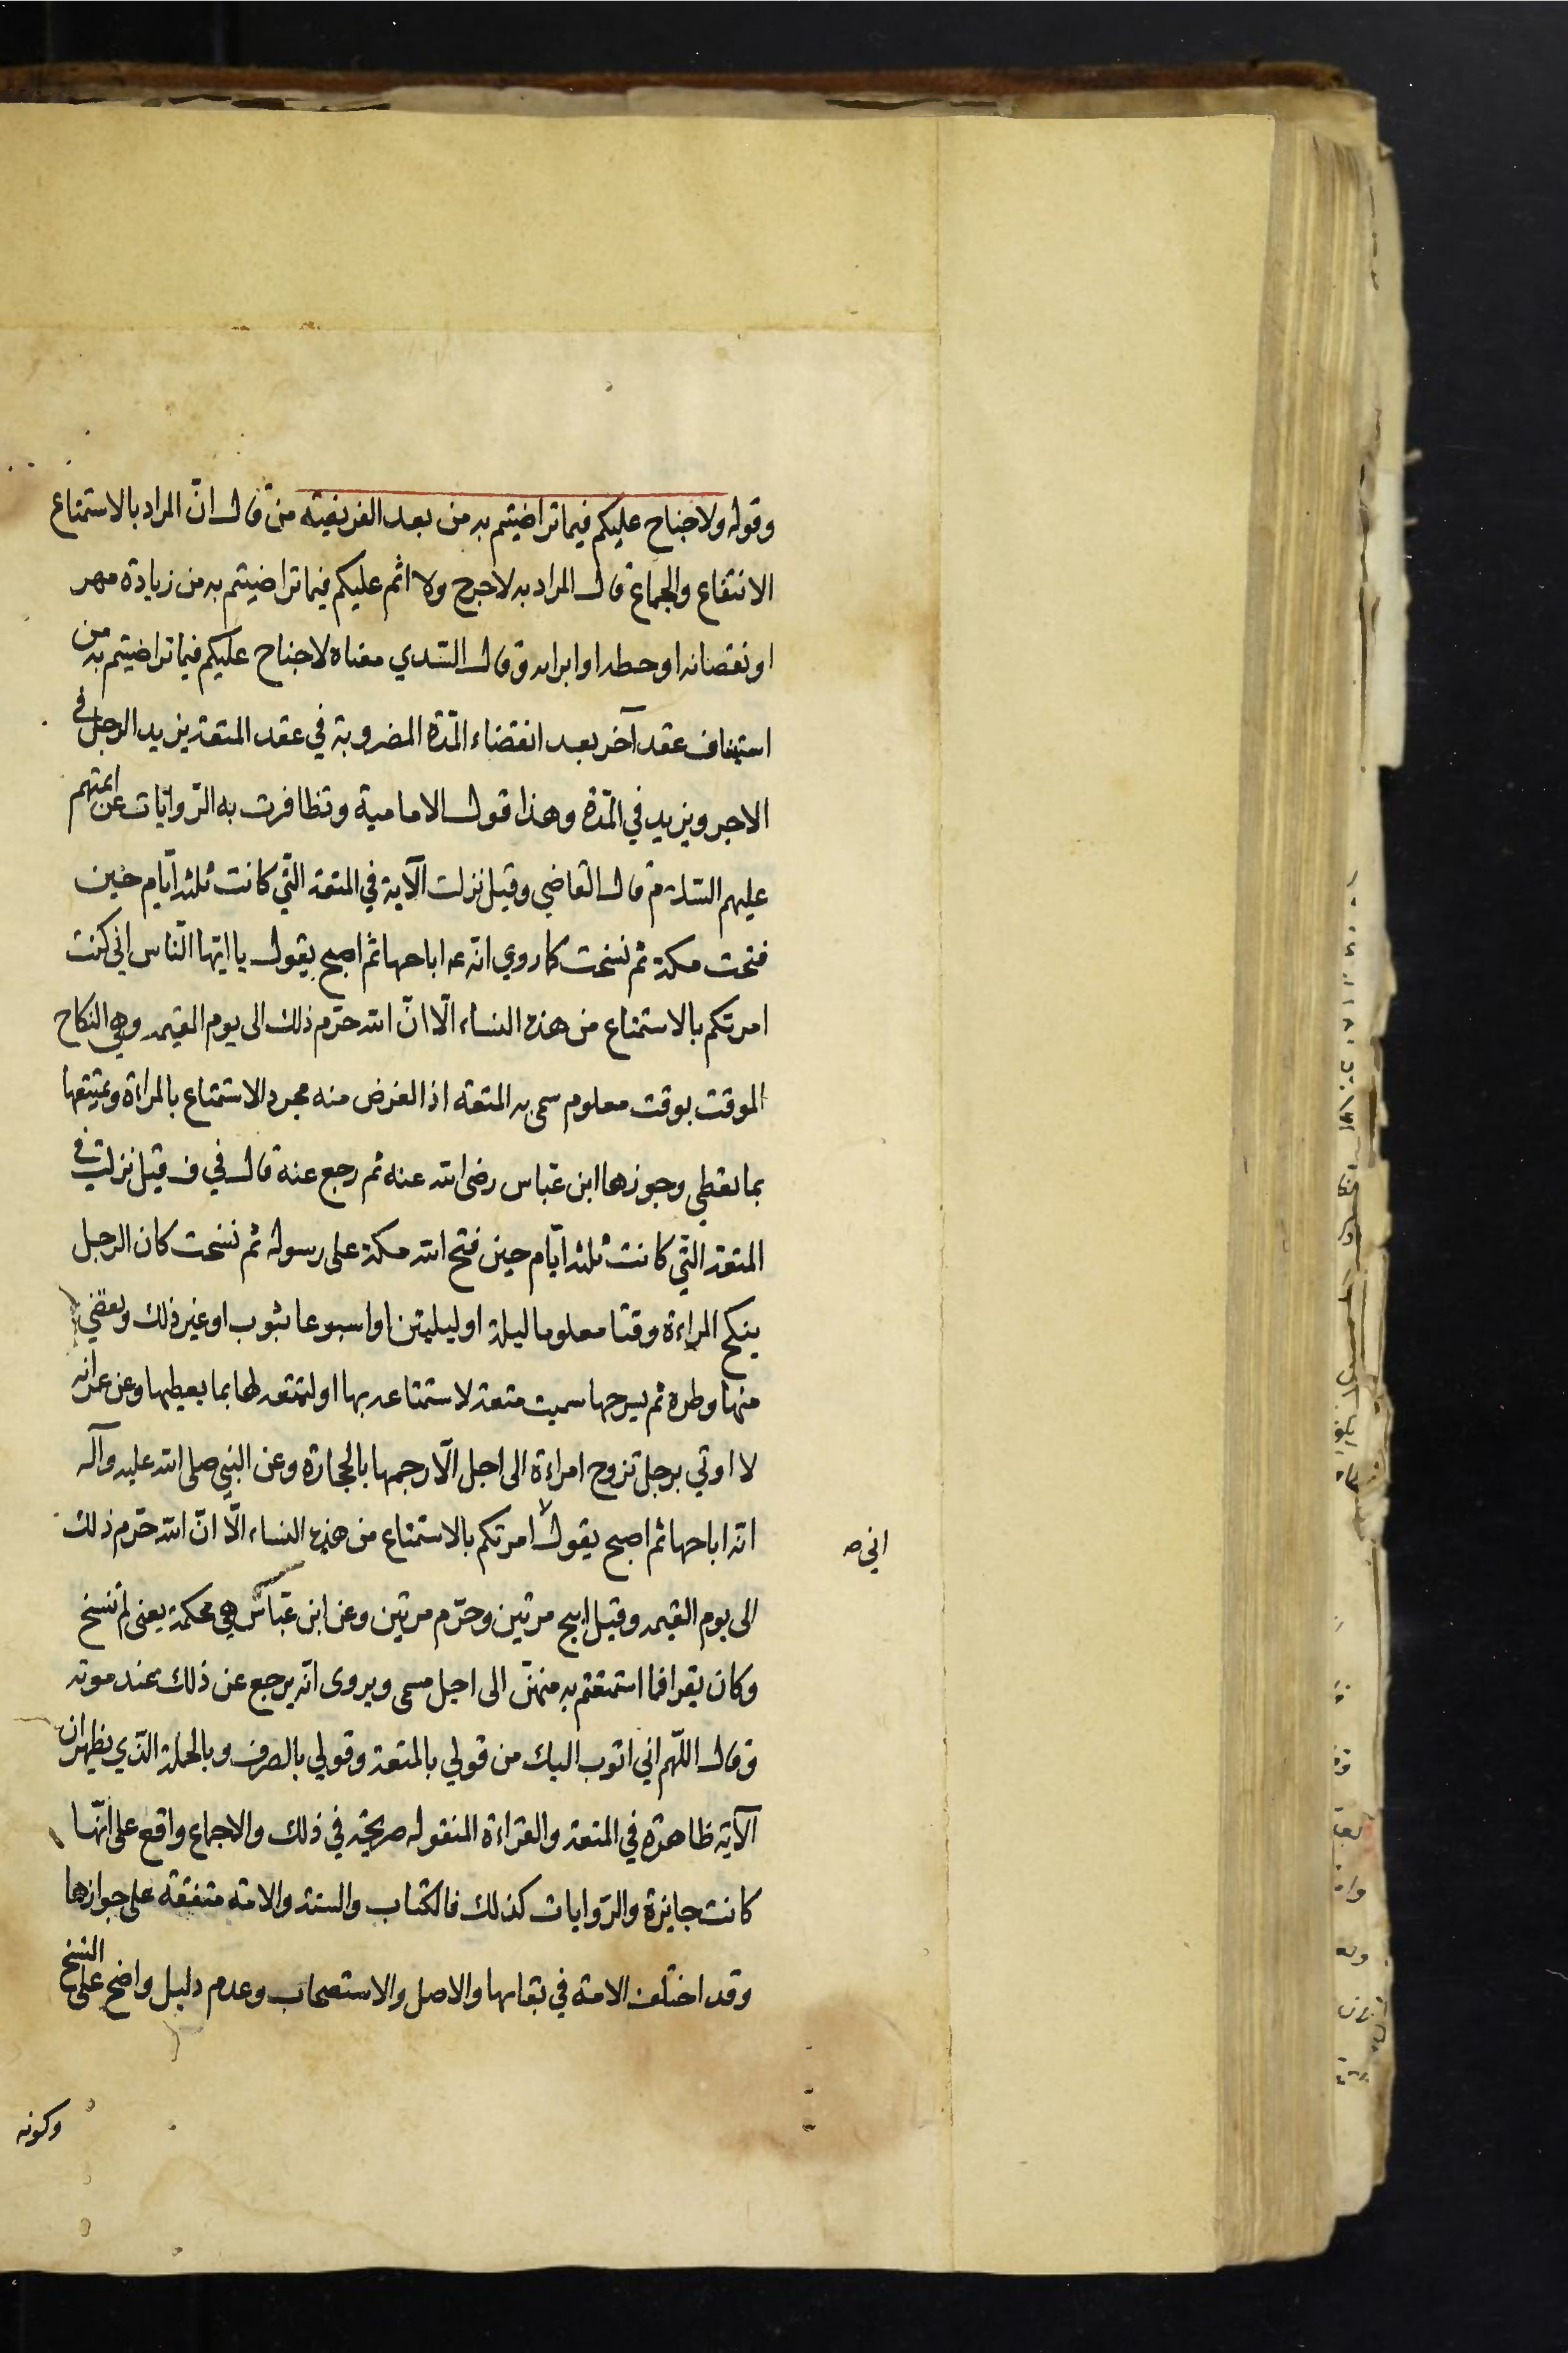 وقوله ولا جناح عليكم فيما تراضيتم به من بعد الفريضة من قال انّ المراد بالاستمتاع
الانتفاع والجماع قال المراد به لا حرج ولا اثم عليكم فيما تراضيتم به من زيادة مهر
او نقصانه او حطه او ابرائه وقال السّدي معناه لا جناح عليكم فيما تراضيتم به من
استيناف عقد آخر بعد انقضاء المّدة المضروبة في عقد المتعة يزيد الرجل في
الاجر ويزيد في المّدة وهذا قول الامامية وتظافرت به الرّوايات عن ائمتهم
عليهم السّلام قال القاضي وقيل نزلت الآية في المتعة الّتي كانت ثلثة ايّام حين
فتحت مكة ثم نسخت كما روي انّه عه اباحها ثم اصبح يقول يا ايّها النّاس اني كنت
امرتكم بالاستمتاع من هذه النساء الّا انّ الله حرّم ذلك الى يوم القيمه وهي النكاح
الموقت بوقت معلوم سمى به المتعة اذ الغرض منه مجرد الاستمتاع بالمراءة وتمتيعها
بما تعطي وجوزها ابن عبّاس رضى الله عنه ثم رجع عنه قال في ف قيل نزلت في
المتعة الّتي كانت ثلثة ايّام حين فتح الله مكة على رسوله ثم نسخت كان الرجل
ينكح المراءة وقتا معلوما ليلة او ليلتين او اسبوعا بثوب او غير ذلك ويقضي
منها وطره ثم يسرحها سميت متعة لاستمتاعه بها او لتمتعه لها بما يعطيها وعن عمر انه
لا اوتي برجل تزوج امراءة الى اجل الّا رجمها بالحجارة وعن النبي صلى الله عليه وآله
انّه اباحها ثم اصبح يقول امرتكم بالاستمتاع من هذه النساء الّا انّ الله حرّم ذلك
اني صه
الى يوم القيمه وقيل ابيح مرتين وحرّم مرتين وعن ابن عبّاس هي محكمة يعنى لم تنسخ
وكان يقرا فما استمتعتم به منهنّ الى اجل مسمى ويروى انّه يرجع عن ذلك عند موته
وقال اللّهم اني اتوب اليك من قولي بالمتعة وقولي بالصرف وبالجملة الّذي يظهر ان
الآية ظاهرة في المتعة والقراءة المنقوله صريحة في ذلك والاجماع واقع على انّها
كانت جايزة والرّوايات كذلك فالكتاب والسنّة والامّة متفقة على جوازها
وقد اختلف الامّة في بقائها والاصل والاستصحاب وعدم دليل واضح على النسخ
وكونه